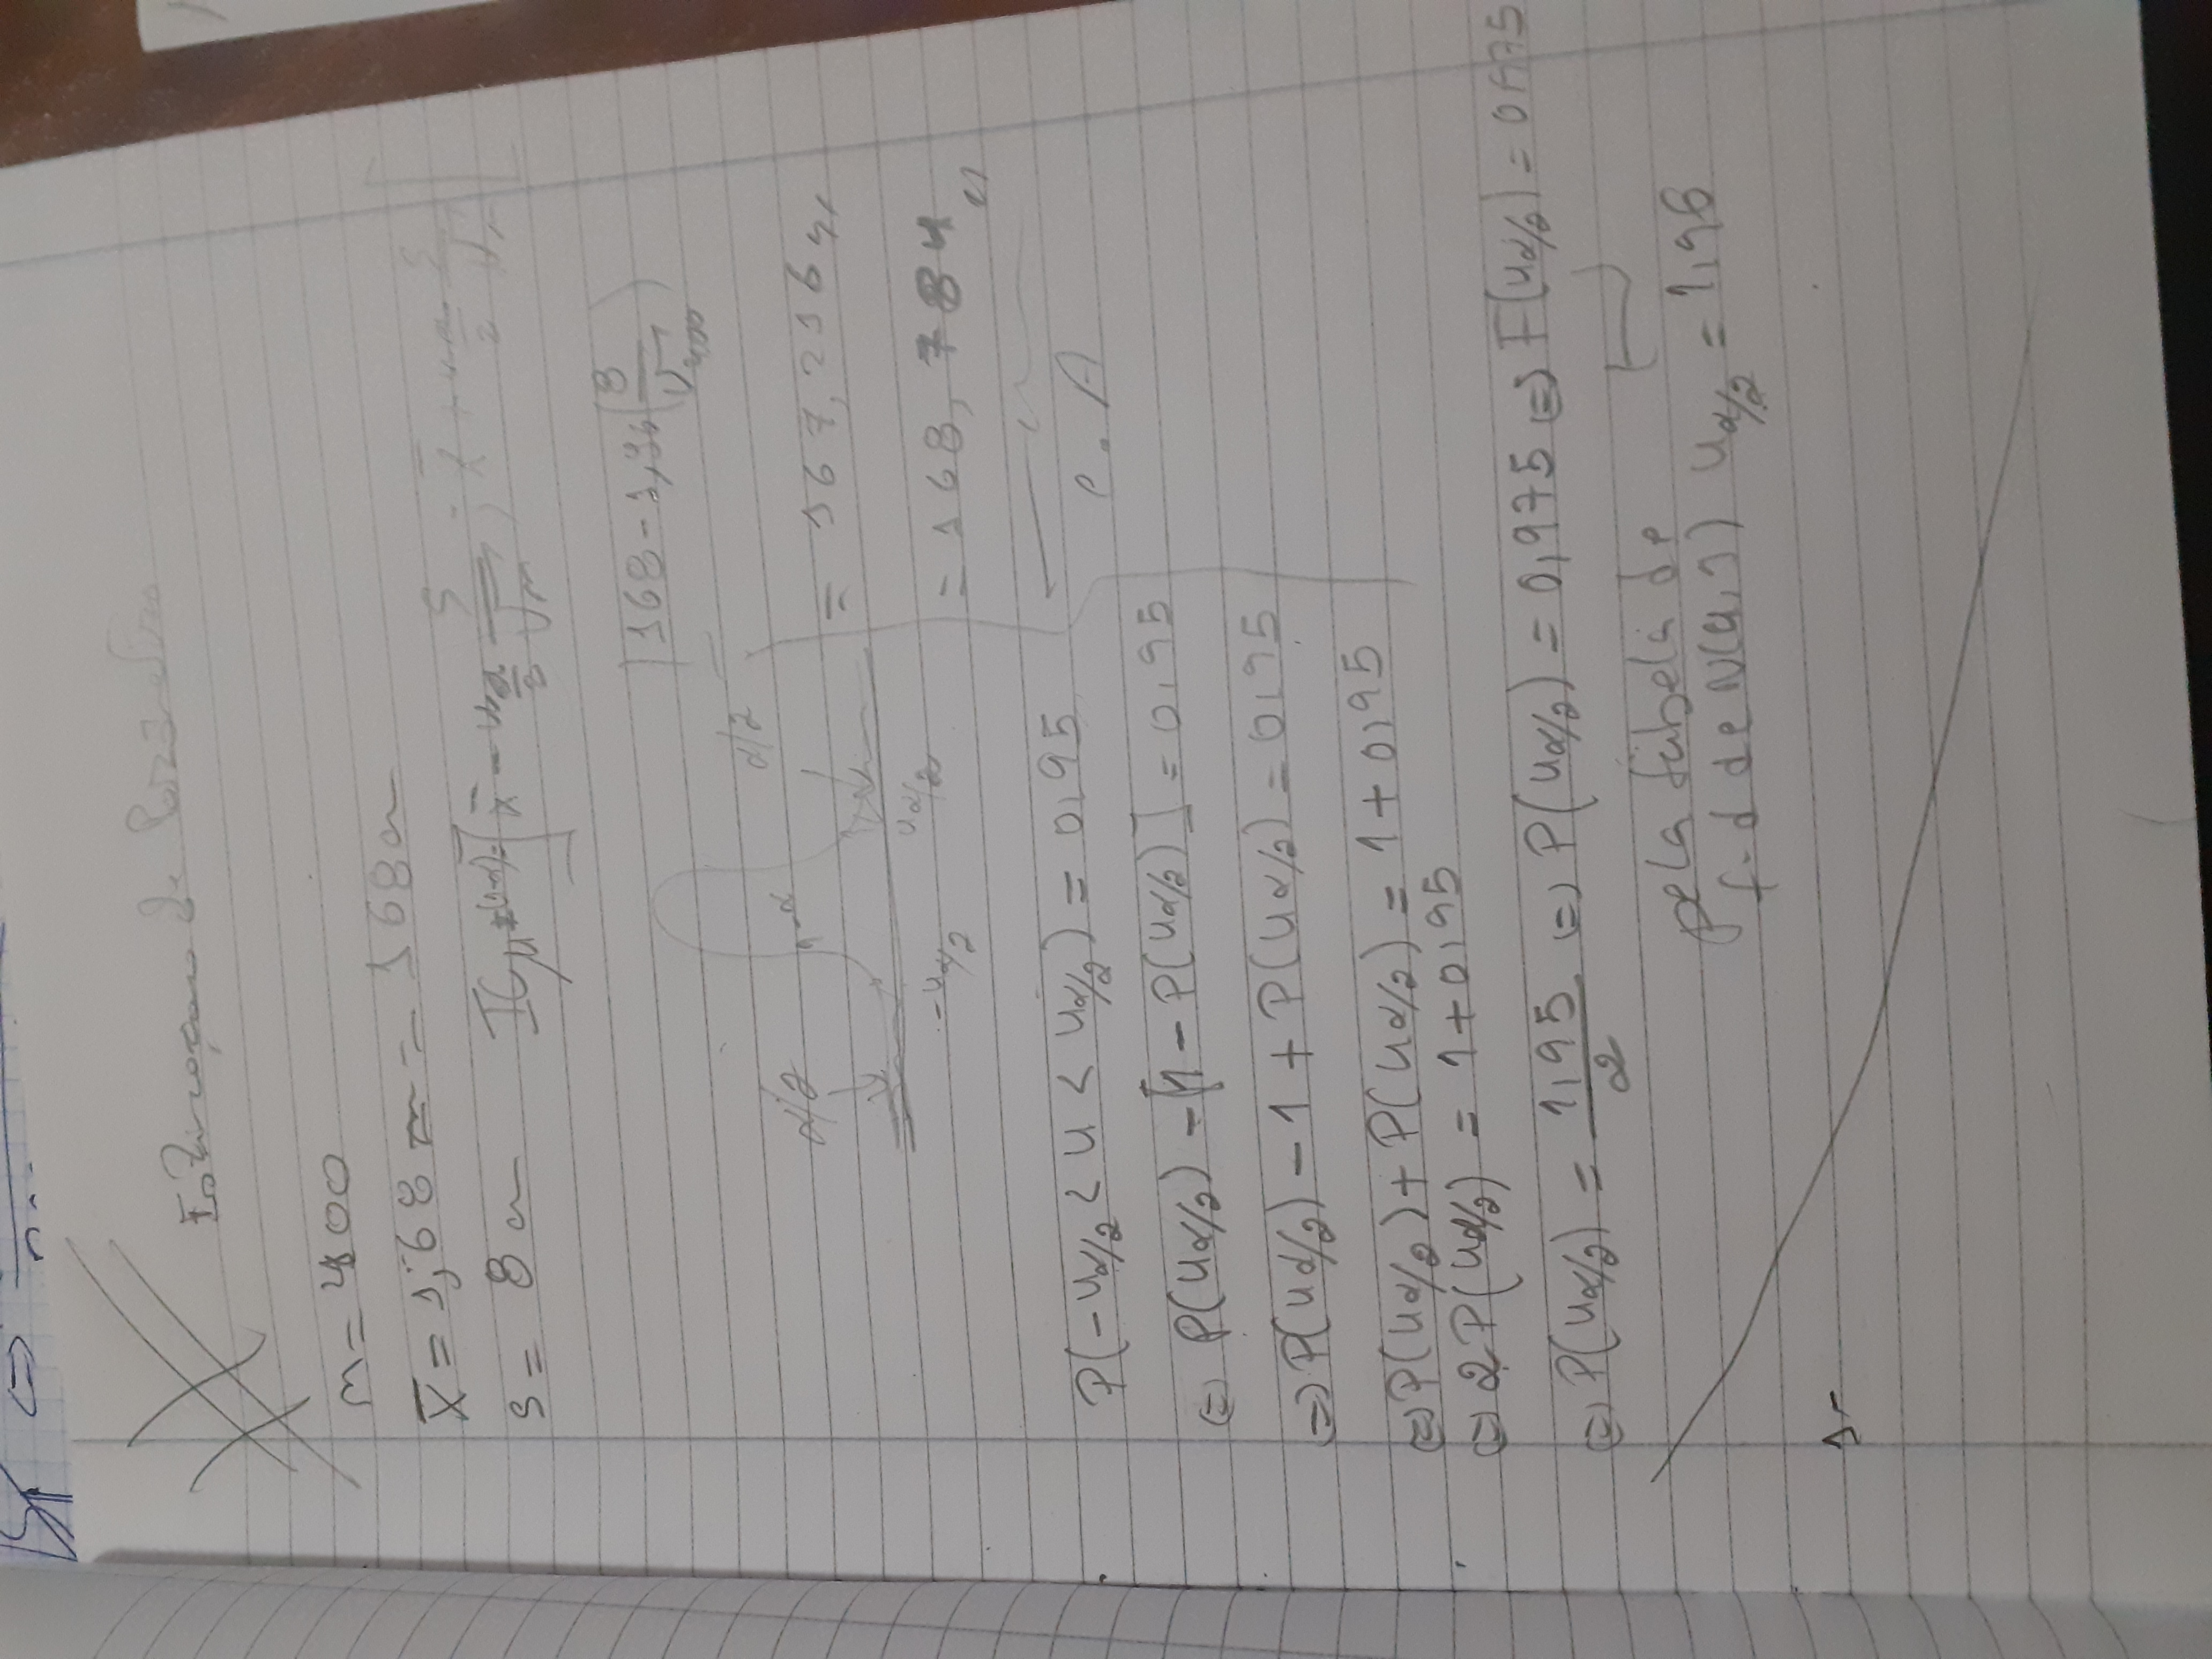 Estimação de Parametros
n = 400
X̄ = 1,68 m = 168 cm
s = 8 cm   ICμ (1-α) = ]x̄ - uα/2 s/√n ; x̄ + uα/2 s/√n[
168 - 1,96 (8/√400)
α/2   1-α   α/2
= 167,216
-uα/2   uα/2
= 168,784
P(-uα/2 < u < uα/2) = 0,95
(=) P(uα/2) - [1 - P(uα/2)] = 0,95
=) P(uα/2) - 1 + P(uα/2) = 0,95
(=) P(uα/2) + P(uα/2) = 1 + 0,95
(=) 2P(uα/2) = 1 + 0,95
(=) P(uα/2) = 1,95/2 (=) P(uα/2) = 0,975 (=) F(uα/2) = 0,975
pela tabela de
f.d de N(0,1)   uα/2 = 1,96
1-